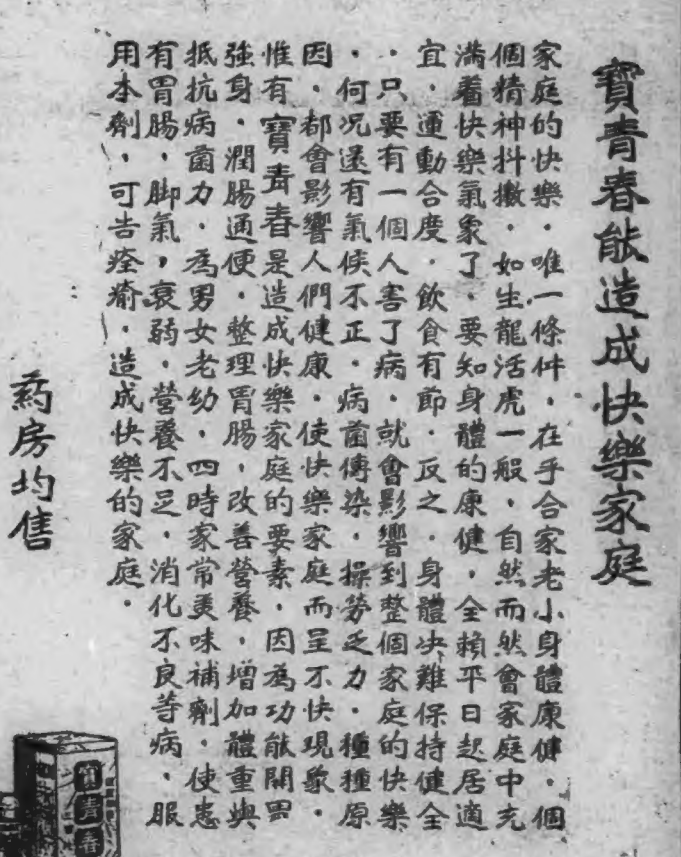 寶青春能造成快樂家庭
家庭的快樂．唯一條件．在乎合家老小身體康健．個
個精神抖擻．如生龍活虎一般．自然而然會家庭中充
滿着快樂氣象了．要知身體的康健．全賴平日起居適
宜．運動合度．飲食有節．反之．身體决難保持健全
．只要有一個人害了病．就會影響到整個家庭的快樂
．何況還有氣候不正．病菌傳染．操勞乏力．種種原
因．都會影響人們健康．使快樂家庭而呈不快現象．
惟有寶青春是造成快樂家庭的要素．因為功能開胃
強身．潤腸通便．整理胃腸．改善營養．增加體重與
抵抗病菌力．為男女老幼．四時家常美味補劑．使患
有胃腸．脚氣，衰弱．營養不足．消化不良等病．服
用本劑．可告痊瘉．造成快樂的家庭．
葯房均售
寶青春